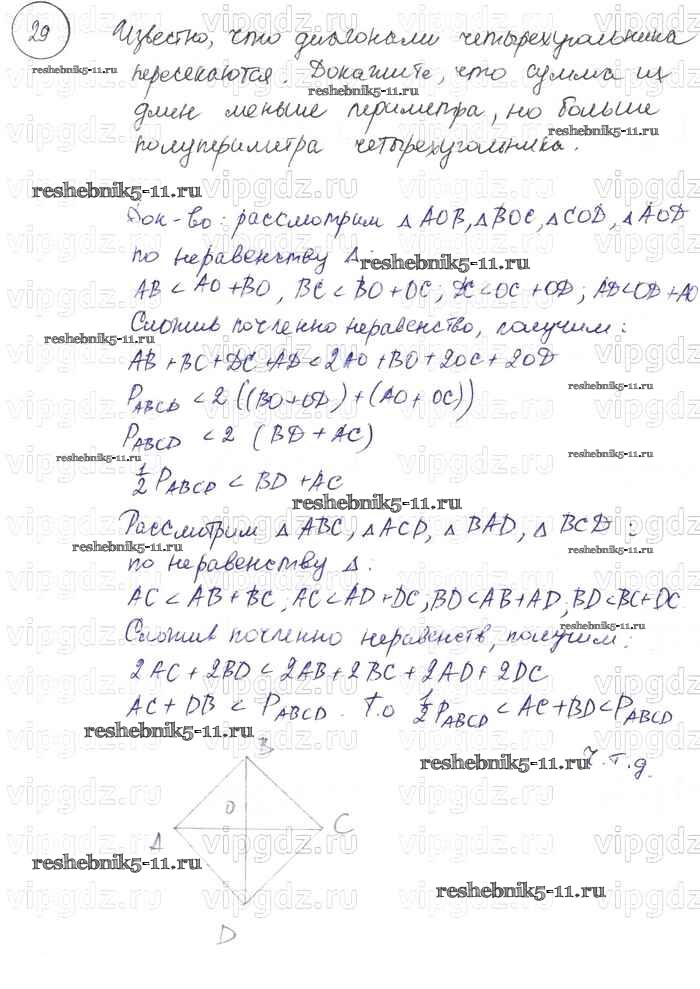 29
Известно, что диагонали четырехугольника
пересекаются. Докажите, что сумма их
длин меньше периметра, но больше
полупериметра четырехугольника.
Док-во: рассмотрим △AOB, △BOC, △COD, △AOD
по неравенству △:
AB < AO + BO, BC < BO + OC; DC < OC + OD; AD < OD + AO
Сложив почленно неравенство, получим:
AB + BC + DC + AD < 2AO + BO + 2OC + 2OD
P_ABCD < 2 ((BO + OD) + (AO + OC))
P_ABCD < 2 (BD + AC)
1/2 P_ABCD < BD + AC
Рассмотрим △ABC, △ACD, △BAD, △BCD:
по неравенству △:
AC < AB + BC; AC < AD + DC; BD < AB + AD; BD < BC + DC
Сложив почленно неравенств, получим:
2AC + 2BD < 2AB + 2BC + 2AD + 2DC
AC + DB < P_ABCD. Т.о 1/2 P_ABCD < AC + BD < P_ABCD
ч.т.д.
B
O
A
C
D
reshebnik5-11.ru
vipgdz.ru